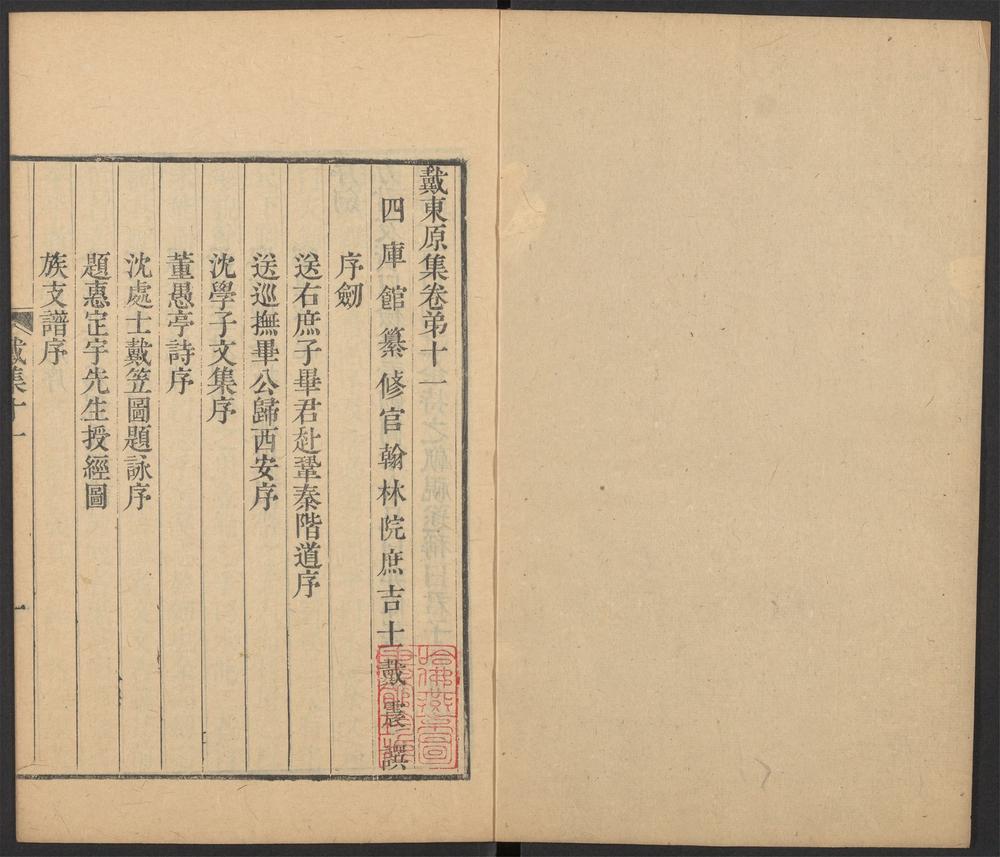 戴東原集卷弟十一
四庫館纂修官翰林院庶吉士戴震譔
序劒
送右庶子畢君赴鞏秦階道序
送巡撫畢公歸西安序
沈學子文集序
董愚亭詩序
沈處士戴笠圖題詠序
題惠定宇先生授經圖
族支譜序
戴集十一
一
哈佛燕京圖